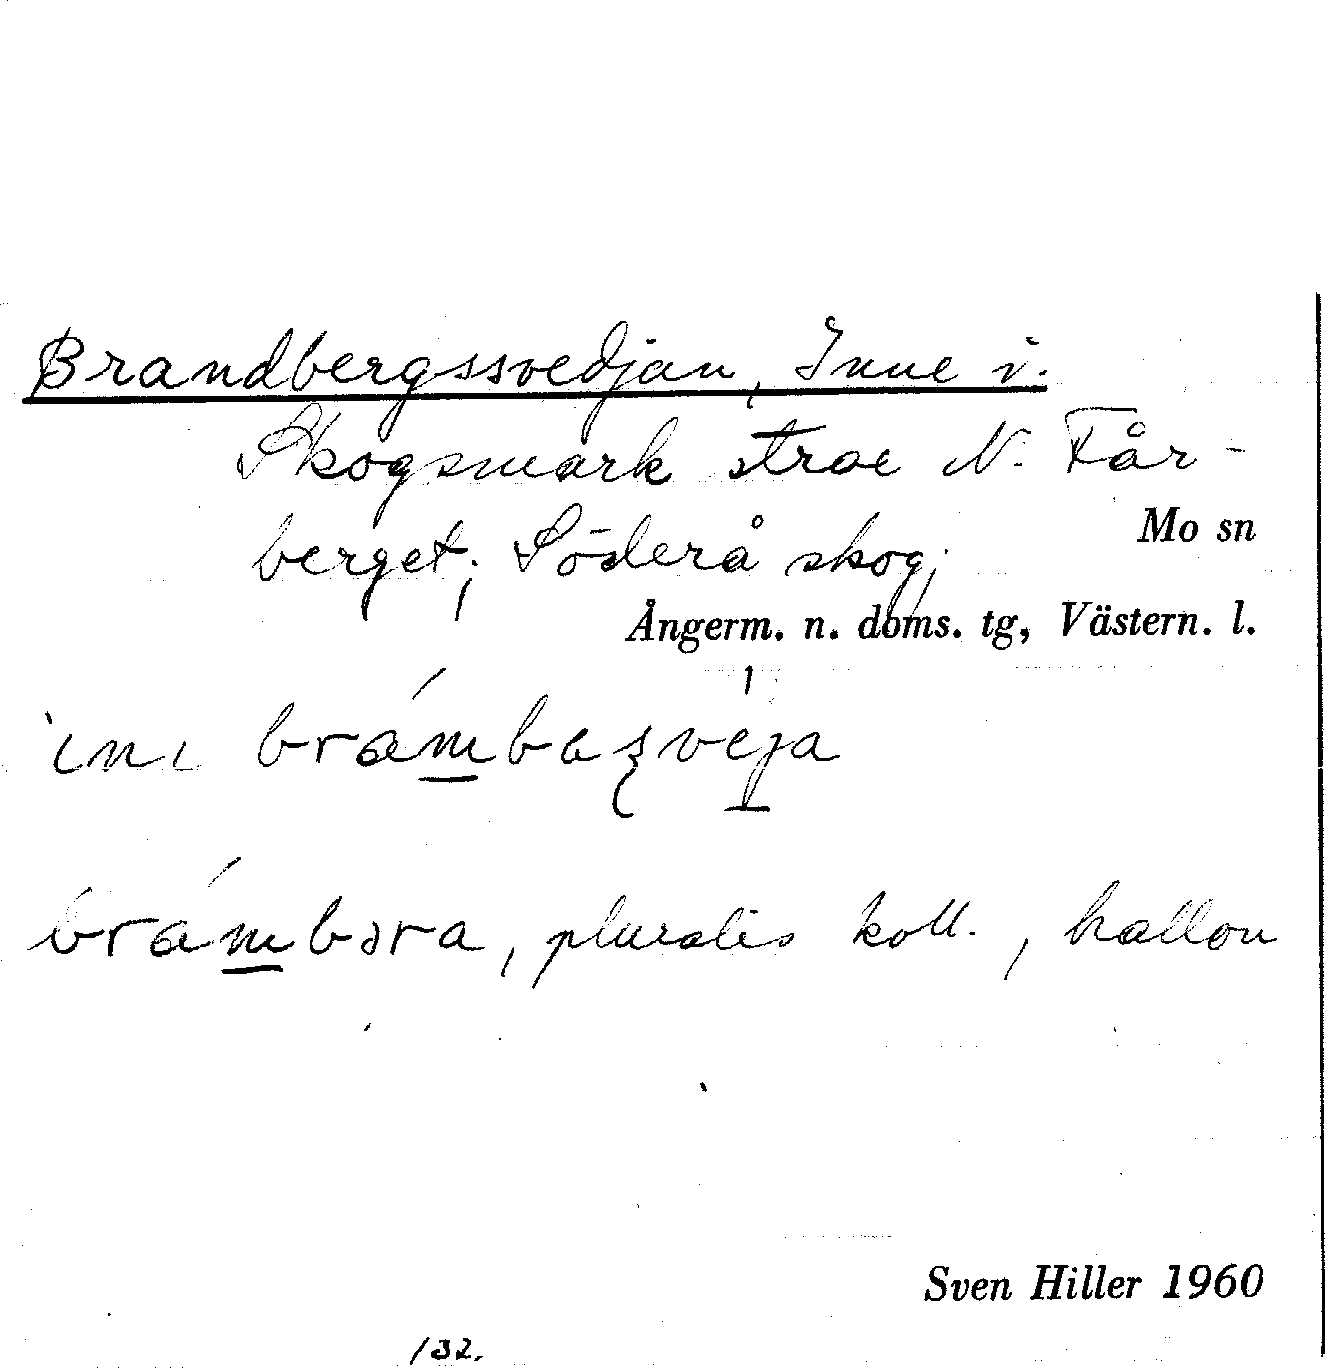 Brandbergssvedjan, Inne i.
Skogsmark strax N. Får-
berget; Söderå skog;
Mo sn
Ångerm. n. doms. tg, Västern. l.
brámbəra, pluralis koll., hallon
Sven Hiller 1960
132.